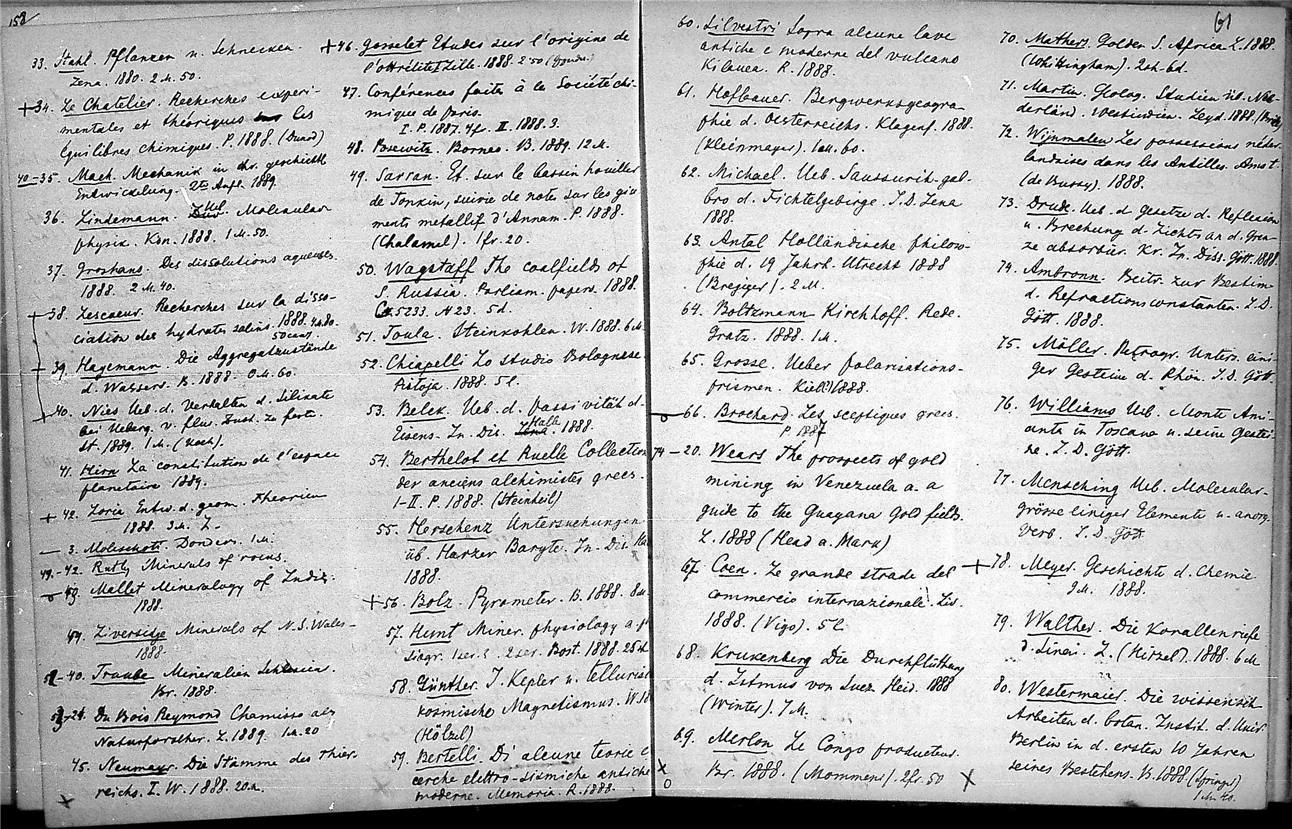 158
33. Stahl. Pflanzen u. Schnecken.
Jena. 1880. 2 M. 50.
+34. Le Chatelier. Recherches experi-
mentales et théoriques les
équilibres chimiques. P. 1888. (Dunod)
40-35. Mach. Mechanik in ihr. geschichtl
Entwickelung. 2te Aufl. 1889.
36. Lindemann. Ueb. Molecular
physik. Kön. 1888. 1 M. 50.
37. Groshans. Des dissolutions aqueuses.
1888. 2 M. 40.
+38. Lescoeur. Recherches sur la disso-
ciation des hydrates salins. 1888.
+39. Hagemann. Die Aggregatzustände
d. Wassers. B. 1888. 0 M. 60.
+40. Nies Ueb. d. Verhalten d. Silicate
bei Ueberg. v. flu. Zust. z. feste.
St. 1889. 1 M. (Koch).
41. Hirn La constitution de l'espace
planetaire 1889.
+42. Loria Entw. d. geom. Theorien
1888. 3 M. L.
3. Moleschott. Donders. 1 M.
49-42. Rutley Minerals of veins.
Mallet Mineralogy of India.
1888.
44. Liversidge Minerals of N. S. Wales-
1888.
40. Traube Mineralien Schlesien.
Br. 1888.
24. Du Bois Reymond Chamisso als
Naturforscher. L. 1889. 1 M. 20
45. Neumayr. Die Stämme des Thier-
reichs. I. W. 1888. 20 M.
×
+46. Gosselet Etudes sur l'origine de
l'ottrélite Lille. 1888. 2 50
47. Conférences faite à la Société chi-
mique de Paris.
I. P. 1887. 4 fr. II. 1888. 3.
48. Posewitz. Borneo. B. 1889. 12 M.
49. Sarran. Et. sur le bassin houiller
de Tonkin, suivie de notes sur les gise
ments metallif d'Annam. P. 1888.
(Chalamel). 1 fr. 20.
50. Wagstaff The coalfields of
S. Russia. Parliam. papers. 1888.
C. 5233. N 23. 5 d.
51. Toula. Steinkohlen. W. 1888. 6 M.
52. Chiapelli Lo studio Bolognese.
Pistoja. 1888. 5 l.
53. Belck. Ueb. d. Passivität d.
Eisens. In. Dis. Halle. 1888.
54. Berthelot et Ruelle Collection
der anciens alchimistes grecs.
I-II. P. 1888. (Steinheil)
55. Herschenz Untersuchungen
üb. Harzer Baryte. In. Dis. Ha
1888.
+56. Bolz. Pyrometer. B. 1888. 8 M.
57. Hunt Miner. physiology a. p
siogr. 1 ser. 2 ser. Bost. 1888. 25 M
58. Günther. J. Kepler u. tellurisch
kosmische Magnetismus. W. 18
(Hölzel)
59. Bertelli. Di alcune teorie e
cerche elettro-sismiche antiche
moderne. Memoria. R. 1888.
61
60. Silvestri Sopra alcune lave
antiche e moderne del vulcano
Kilauea. R. 1888.
61. Hofbauer. Bergwerksgeogra
phie d. Oesterreichs. Klagenf. 1888.
(Kleinmayer). 1 M. 60.
62. Michael. Ueb. Saussurit-gab-
bro d. Fichtelgebirge. I. D. Jena
1888.
63. Antal Holländische Philoso-
phie d. 19 Jahrh. Utrecht 1888
(Breijer). 2 M.
64. Boltzmann Kirchhoff. Rede.
Gratz. 1888. 1 M.
65. Grosse. Ueber Polarisations-
prismen. Kiel 1888.
66. Brochard. Les sceptiques grecs.
P. 1887
74-20. Wears The prospects of gold
mining in Venezuela a. a
guide to the Guayana Gold fields.
L. 1888 (Head a. Mark)
67. Coen. Le grande strade del
commercio internazionale. Liv.
1888. (Vigo). 5 l.
68. Krukenberg Die Durchfluthung
d. Istmus von Suez. Heid. 1888
(Winter). 7 M.
69. Merlon Le Congo producteur.
Br. 1888. (Mommens). 2 fr. 50
×
70. Mathers. Golden S. Africa. L. 1888.
(Whittingham). 2 sh. 6 d.
71. Martin. Geolog. Studien üb. Nie-
derländ. Westindien. Leyd. 1888.
72. Wijnmalen Les possessions néder
landaises dans les Antilles. Amst.
(de Bussy). 1888.
73. Drude. Ueb. d. Gesetze d. Reflexion
u. Brechung d. Lichts an d. Gren-
ze absorbir. Kr. In. Diss. Gött. 1888.
74. Ambronn. Beitr. zur Bestim
d. Refractionsconstanten. I. D.
Gött. 1888.
75. Möller. Petrogr. Unters. eini-
ger Gesteine d. Rhön. I. D. Gött.
76. Williams Ueb. Monte Ami-
anta in Toscana u. seine Gestei-
ne. I. D. Gött.
77. Mensching Ueb. Molecular-
grösse einiger Elemente u. anorg.
Verb. I. D. Gött
+78. Meyer. Geschichte d. Chemie
9 M. 1888.
79. Walther. Die Korallenriffe
d. Sinai. L. (Hirzel). 1888. 6 M.
80. Westermaier. Die wissensch.
Arbeiten d. botan. Instit. d. Univ.
Berlin in d. ersten 10 Jahren
seines Bestehens. B. 1888. (Springer)
1 M. 40.